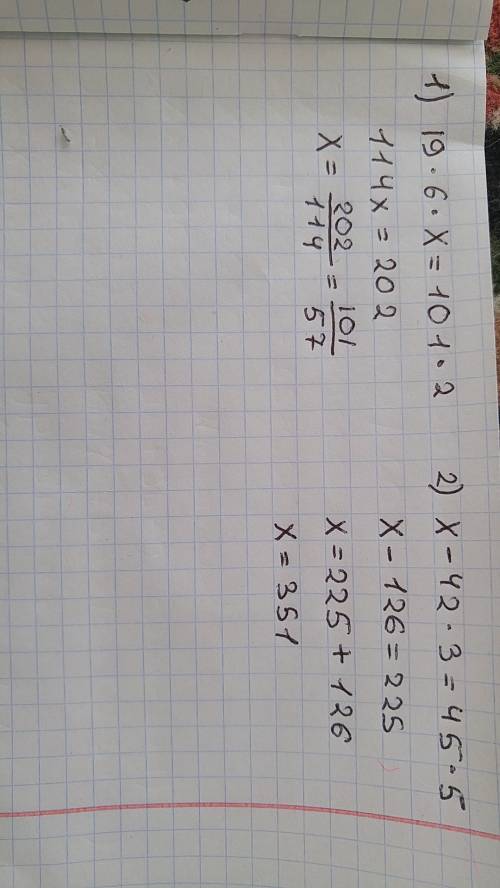 1) 19·6·X=101·2
114x=202
X=202/114=101/57
2) X-42·3=45·5
X-126=225
X=225+126
X=351